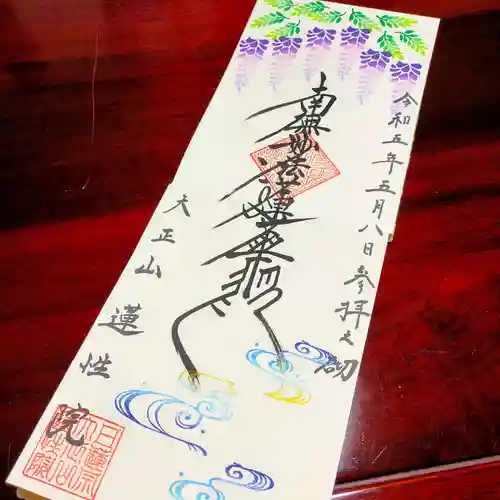 令和五年五月八日参拝之砌
南無妙法蓮華経
大正山
蓮性院